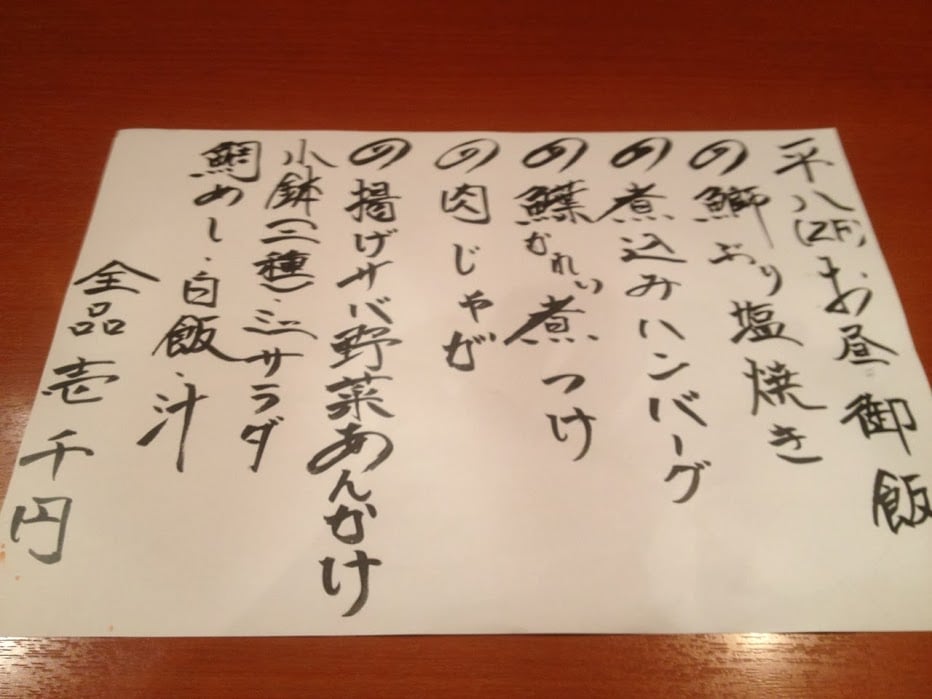 平八(2F)お昼御飯
の鰤ぶり塩焼き
の煮込みハンバーグ
の鰈かれい煮つけ
の肉じゃが
の揚げサバ野菜あんかけ
小鉢(二種)・ミニサラダ
鯛めし・白飯・汁
全品壱千円